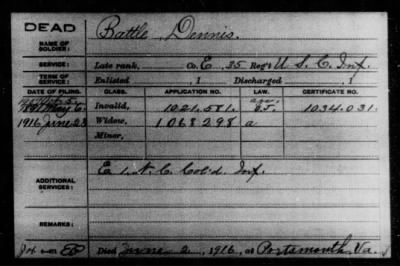 DEAD
NAME OF SOLDIER: Battle, Dennis.
SERVICE: Late rank, Co. E, 35 Reg't U.S.C. Inf.
TERM OF SERVICE: Enlisted , 1 Discharged , 1
DATE OF FILING. CLASS. APPLICATION NO. LAW. CERTIFICATE NO.
1891 May 6 Invalid, 1021.581. 1034.031.
1916 June 23 Widow, 1068298 a
Minor,
ADDITIONAL SERVICES: E 1. N.C. Col'd. Inf.
REMARKS:
Died June 2, 1916, at Portsmouth, Va.